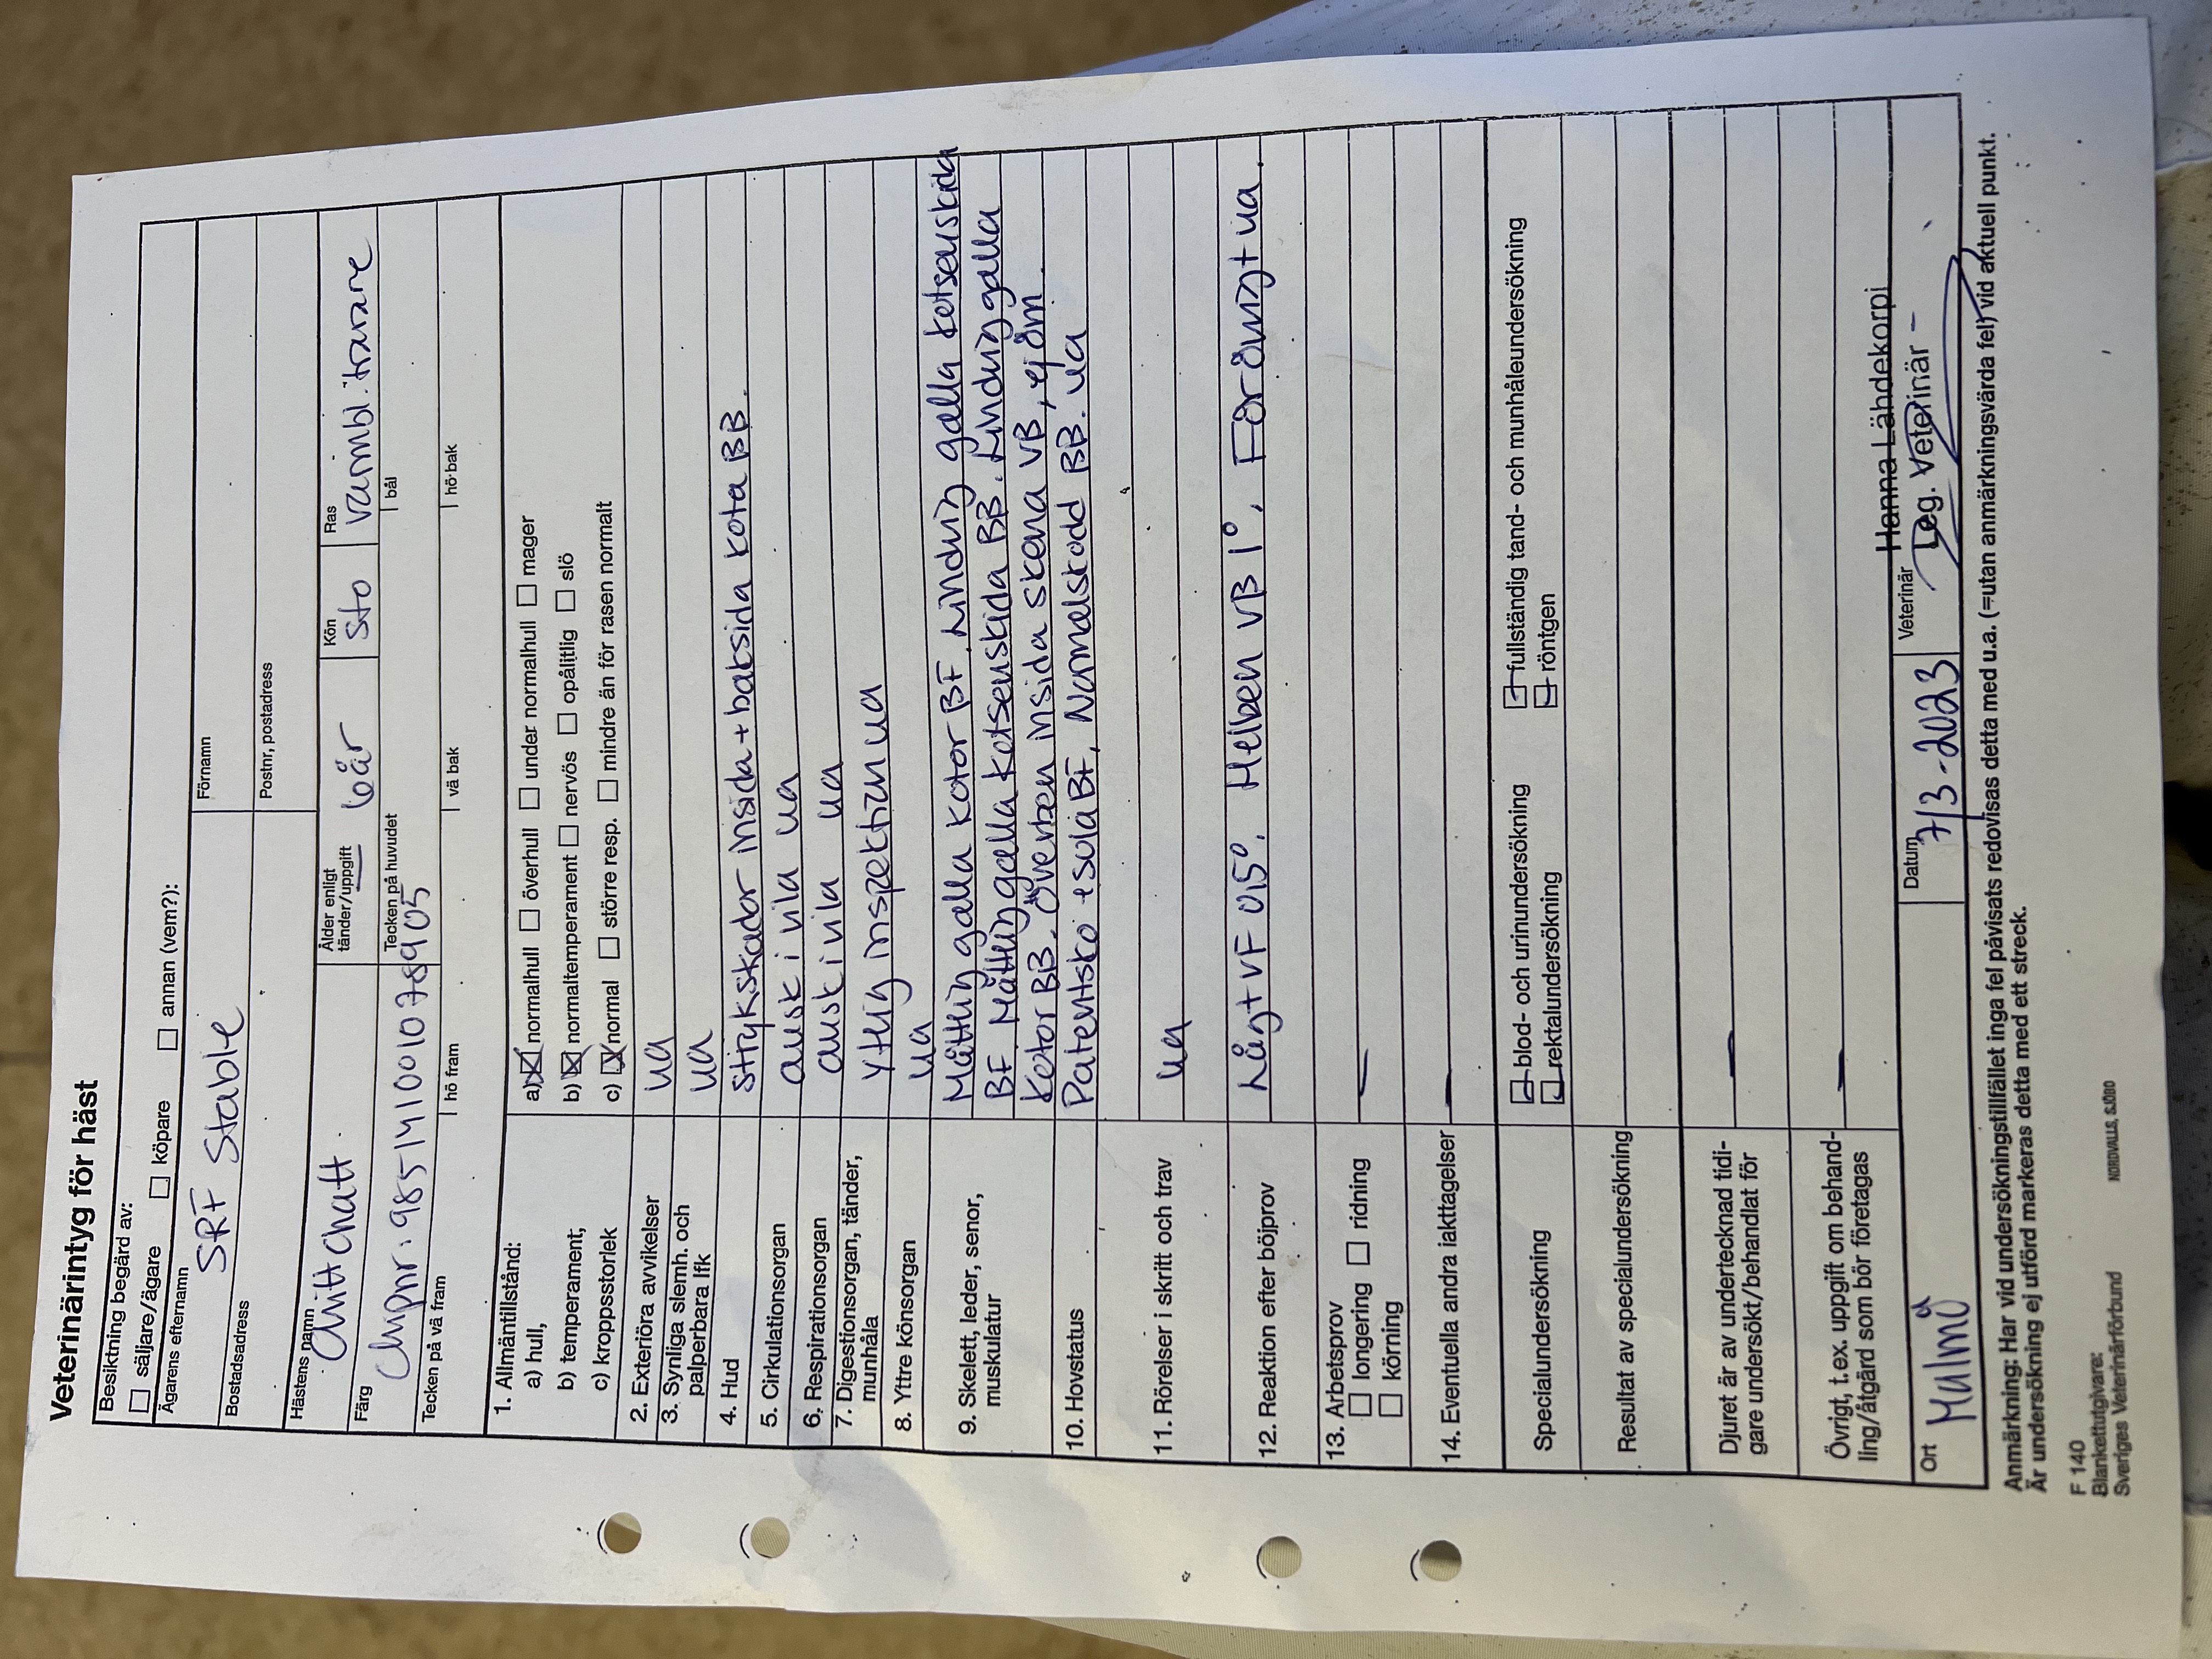 Veterinärintyg för häst
Besiktning begärd av:
säljare/ägare köpare annan (vem?):
Ägarens efternamn Förnamn
SRF Stable
Bostadsadress Postnr, postadress
Hästens namn Ålder enligt tänder/uppgift Kön Ras
Chitt chatt. 6år Sto Varmbl. travare
Färg Tecken på huvudet bål
Chipnr: 985141001078905
Tecken på vä fram hö fram vä bak hö bak
1. Allmäntillstånd:
a) hull, a) normalhull överhull under normalhull mager
b) temperament; b) normaltemperament nervös opålitlig slö
c) kroppsstorlek c) normal större resp. mindre än för rasen normalt
2. Exteriöra avvikelser ua
3. Synliga slemh. och
palperbara lfk ua
4. Hud strykskador insida + baksida kota BB.
5. Cirkulationsorgan ausk i vila ua
6. Respirationsorgan ausk i vila ua
7. Digestionsorgan, tänder,
munhåla ytlig inspektion ua
8. Yttre könsorgan ua
9. Skelett, leder, senor,
muskulatur
Måttlig galla kotor BF. Lindrig galla kotsenskida
BF. Måttlig galla kotsenskida BB. Lindrig galla
kotor BB. Överben insida skena VB, ej öm.
10. Hovstatus Patentsko + sula BF, Normalskodd BB. ua
11. Rörelser i skritt och trav ua
12. Reaktion efter böjprov Lågt VF 0,5°. Helben VB 1°. För övrigt ua.
13. Arbetsprov
longering ridning
körning
—
14. Eventuella andra iakttagelser —
Specialundersökning
blod- och urinundersökning fullständig tand- och munhåleundersökning
rektalundersökning röntgen
Resultat av specialundersökning
Djuret är av undertecknad tidi-
gare undersökt/behandlat för —
Övrigt, t.ex. uppgift om behand-
ling/åtgärd som bör företagas —
Ort Datum Veterinär
Malmö 7/3-2023 Hanna Lähdekorpi
Leg. Veterinär
Anmärkning: Har vid undersökningstillfället inga fel påvisats redovisas detta med u.a. (=utan anmärkningsvärda fel) vid aktuell punkt.
Är undersökning ej utförd markeras detta med ett streck.
F 140
Blankettutgivare:
Sveriges Veterinärförbund NORDVALLS, SJÖBO